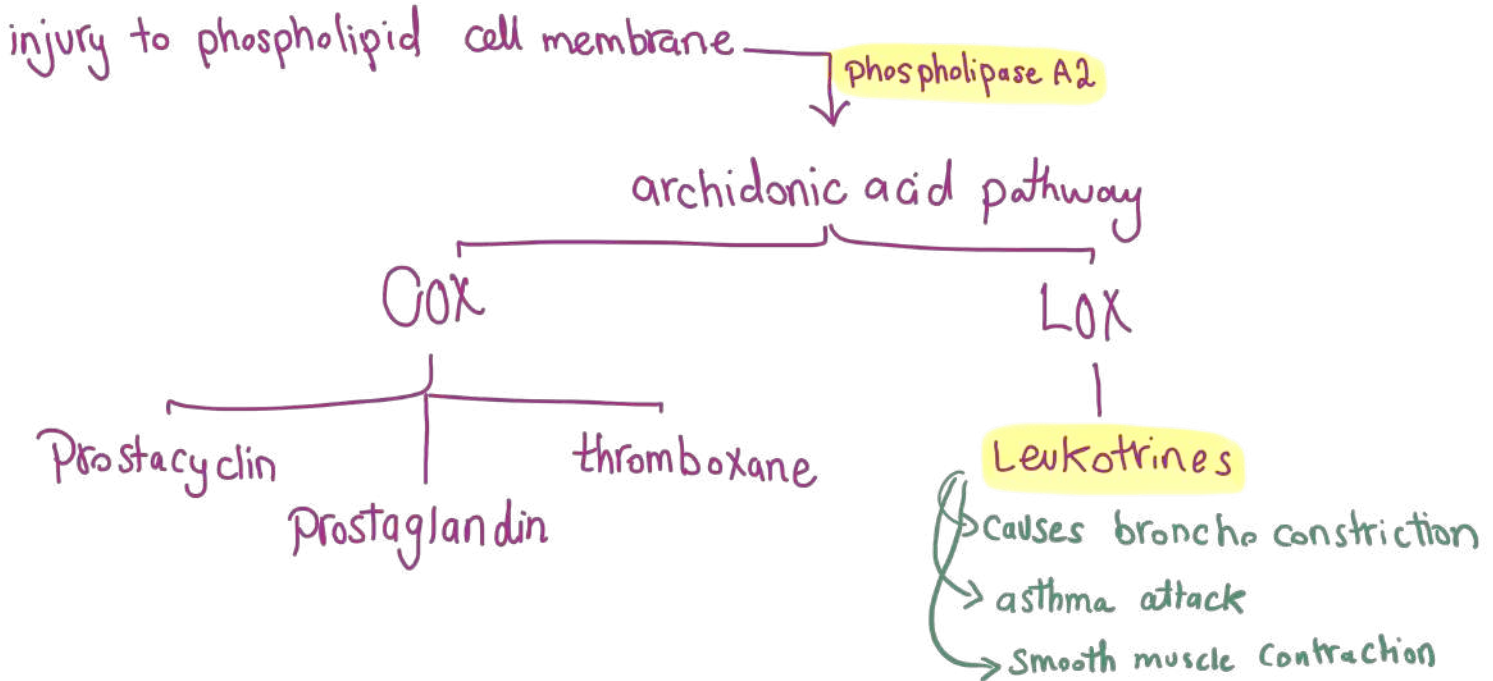 injury to phospholipid cell membrane
phospholipase A2
archidonic acid pathway
COX
LOX
Prostacyclin
thromboxane
Leukotrines
prostaglandin
causes broncho constriction
asthma attack
smooth muscle contraction